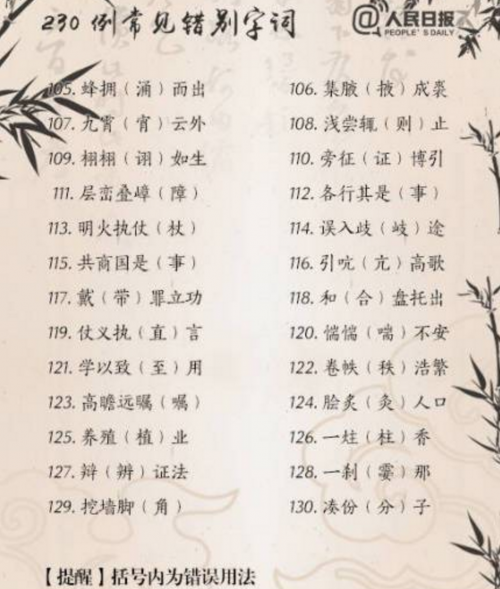 230 例常见错别字词
@人民日报
PEOPLE'S DAILY
105. 蜂拥（涌）而出 106. 集腋（掖）成裘
107. 九霄（宵）云外 108. 浅尝辄（则）止
109. 栩栩（诩）如生 110. 旁征（证）博引
111. 层峦叠嶂（障） 112. 各行其是（事）
113. 明火执仗（杖） 114. 误入歧（岐）途
115. 共商国是（事） 116. 引吭（亢）高歌
117. 戴（带）罪立功 118. 和（合）盘托出
119. 仗义执（直）言 120. 惴惴（喘）不安
121. 学以致（至）用 122. 卷帙（秩）浩繁
123. 高瞻远瞩（嘱） 124. 脍炙（灸）人口
125. 养殖（植）业 126. 一炷（柱）香
127. 辩（辨）证法 128. 一刹（霎）那
129. 挖墙脚（角） 130. 凑份（分）子
【提醒】括号内为错误用法